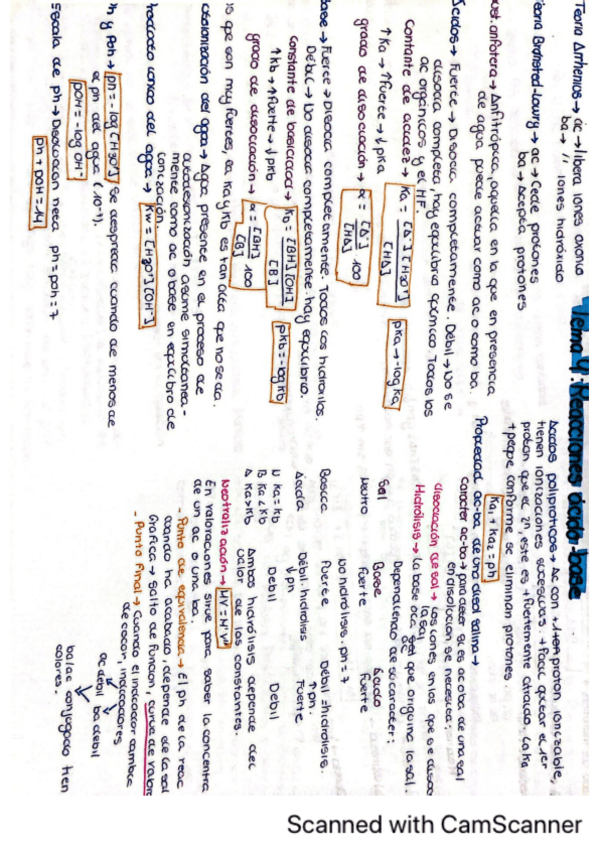 Tema 4: Reacciones ácido-base
Teoría Arrhenius → ác → libera iones oxonio
ba → // iones hidróxido
Teoría Bronsted-Lowry → ac → Cede protones
ba → Acepta protones
Anfitrópica, aquella en la que en presencia
de agua puede actuar como ac o como ba.
Ácidos → Fuerte → Disocia completamente. Débil → No se
disocia completa, hay equilibrio químico. Todos los
ac orgánicos y el HF.
Constante de acidez → Ka = [A⁻][H3O⁺] / [HA] pKa → -log Ka
↑Ka → ↑fuerte → ↓pKa
grado de disociación → α = [A⁻] / [HA] 100
base → Fuerte → Disocia completamente. Todos los hidróxilos.
Débil → No disocia completamente. hay equilibrio.
Constante de basicidad → Kb = [BH][OH] / [B] pKb = -log Kb
↑Kb → ↑fuerte → ↓pKb
grado de disociación → α = [BH] / [B] 100
que son muy fuertes, la Ka y Kb es tan alta que no se da.
del agua → Agua presente en el proceso de
autoionización asume simultánea-
mente como ac o base en equilibrio de
ionización.
Producto iónico del agua → Kw = [H3O⁺][OH⁻]
Ph y Poh → ph = -log [H3O⁺] Se desprecia cuando de menos de
al ph del agua (10⁻⁷).
pOH = -log OH⁻
Escala de ph → Disolución neta ph = poh = 7
ph + poh = 14
Ácidos polipróticos → Ac con + 1 protón ionizable,
tienen ionizaciones sucesivas. + fácil quitar el 1er
protón que el 2n, este es + fuertemente atraído. La Ka
+ peque conforme se eliminan protones
Propiedad ac-ba de una disol salina →
Carácter ac-ba → para saber si es ac o ba de una sal
en disolución se necesita:
disociación de sal → los iones en los que se disoc
la sal
Hidrólisis → la base o ac que origina la sal.
Dependiendo de su carácter:
Sal Base Ácido
Neutro Fuerte Fuerte
No hidrólisis. ph = 7
Básica Fuerte Débil = hidrólisis.
↑ph.
Ácida Débil. hidrólisis Fuerte
↓ph
N Ka = Kb Débil Débil
B Ka < Kb Ambos hidrólisis depende del
A Ka > Kb valor de las constantes.
Neutralización →
En valoraciones sirve para saber la concentra
de un ac o una ba.
- Punto de equivalencia → El ph de la reac
cuando ha acabado, depende de la sal
Gráfica → salto de función, curva de valora
- Punto Final → Cuando el indicador cambia
de color, indicadores
ac débil ba débil
ba/ac conjugado tien
colores.
Scanned with CamScanner